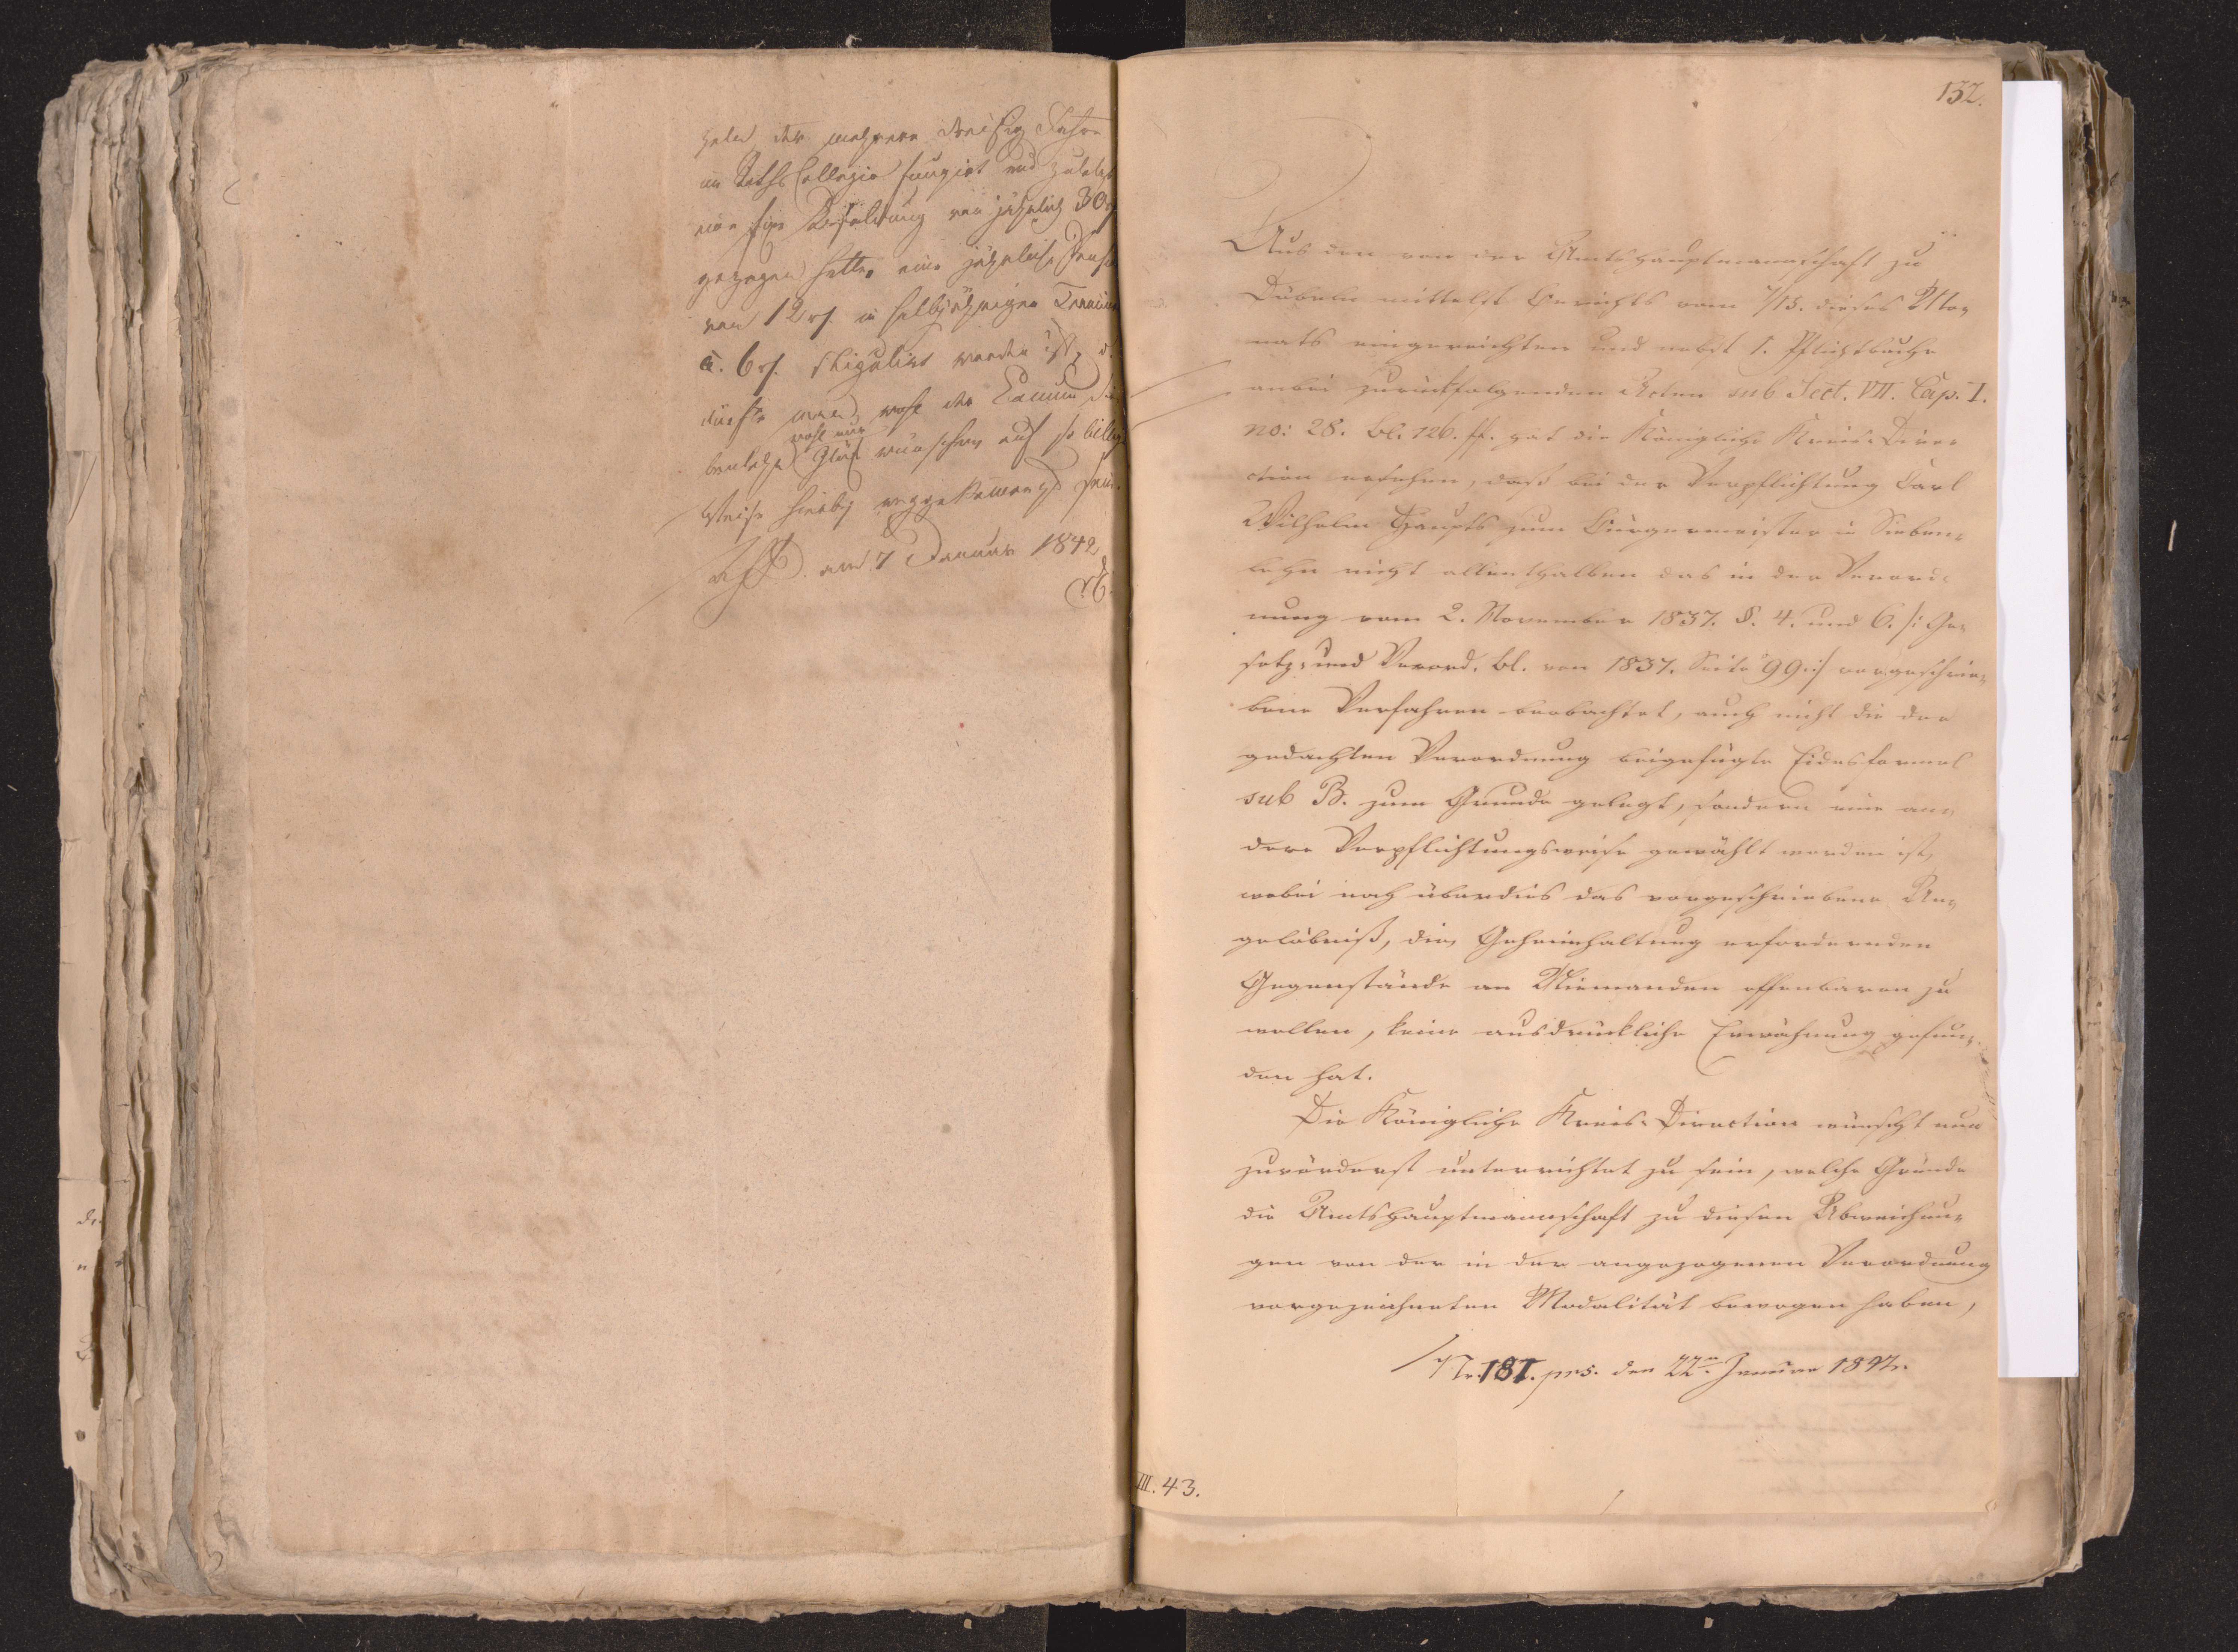 der mehrere dreißig Jahre
im Raths Collegio fungirt und zuletzt
eine fixe Besoldung von jährlich 30
gezogen hatte, eine jährliche
von 12 rf. in halbjährigen
à. 6 rf. stipulirt worden ist,
dürfte man, wohl der
wohl nur
Glück wünschen auf so
Weise hierbey weggekommen zu sein.
am 7 Januar 1842
132.
Aus den von der Amtshauptmannschaft zu
Döbeln mittelst Berichts vom 7/13. dieses Mo-
nats eingereichten und nebst 1. Pflichtbuche
anbei zurückfolgenden Acten sub Sect. VII. Cap. I.
no: 28. bl. 126. ff. hat die Königliche Kreis-Dire-
ction ersehen, daß bei der Verpflichtung Carl
Wilhelm Haupts zum Bürgermeister in Sieben-
lehn nicht allenthalben das in der Verord-
nung vom 2. November 1837. §. 4. und 6. /: Ge-
setz- und Verord. bl. von 1837. Seite 99. :/ vorgeschrie-
bene Verfahren beobachtet, auch nicht die der
gedachten Verordnung beigefügte Eidesformel
sub B. zum Grunde gelegt, sondern eine an-
dere Verpflichtungsweise gewählt worden ist,
wobei noch überdies das vorgeschriebene An-
gelöbniß, die, Geheimhaltung erfordernden
Gegenstände an Niemanden offenbaren zu
wollen, keine ausdrückliche Erwähnung gefun-
den hat.
Die Königliche Kreis-Direction wünscht nun
zuvörderst unterrichtet zu sein, welche Gründe
die Amtshauptmannschaft zu diesen Abweichun-
gen von der in der angezogenen Verordnung
vorgezeichneten Modalität bewogen haben,
Nr. 181. prs. den 22n. Januar 1842.
III. 43.